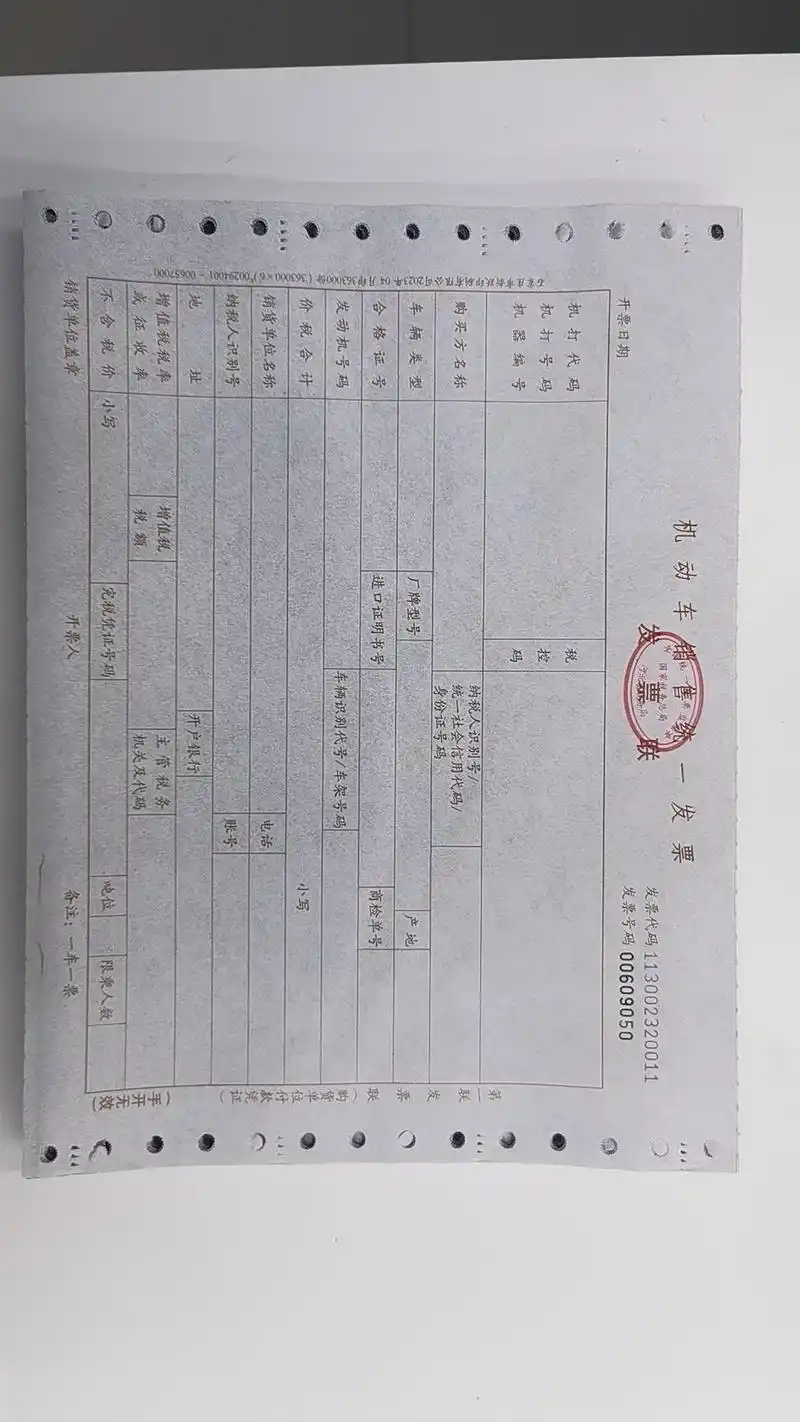 机动车销售统一发票
发票联
发票代码 113002320011
发票号码 00609050
开票日期
机打代码
机打号码
机器编号
税控码
购买方名称
纳税人识别号/
统一社会信用代码/
身份证号码
车辆类型 厂牌型号 产地
合格证号 进口证明书号 商检单号
发动机号码 车辆识别代号/车架号码
价税合计 小写
销货单位名称 电话
纳税人识别号 账号
地址 开户银行
增值税税率
或征收率
增值税
税额
主管税务
机关及代码
不含税价 小写 完税凭证号码 吨位 限乘人数
销货单位盖章 开票人 备注：一车一票
第一联 发票联（购货单位付款凭证）
（手开无效）
国家税务总局